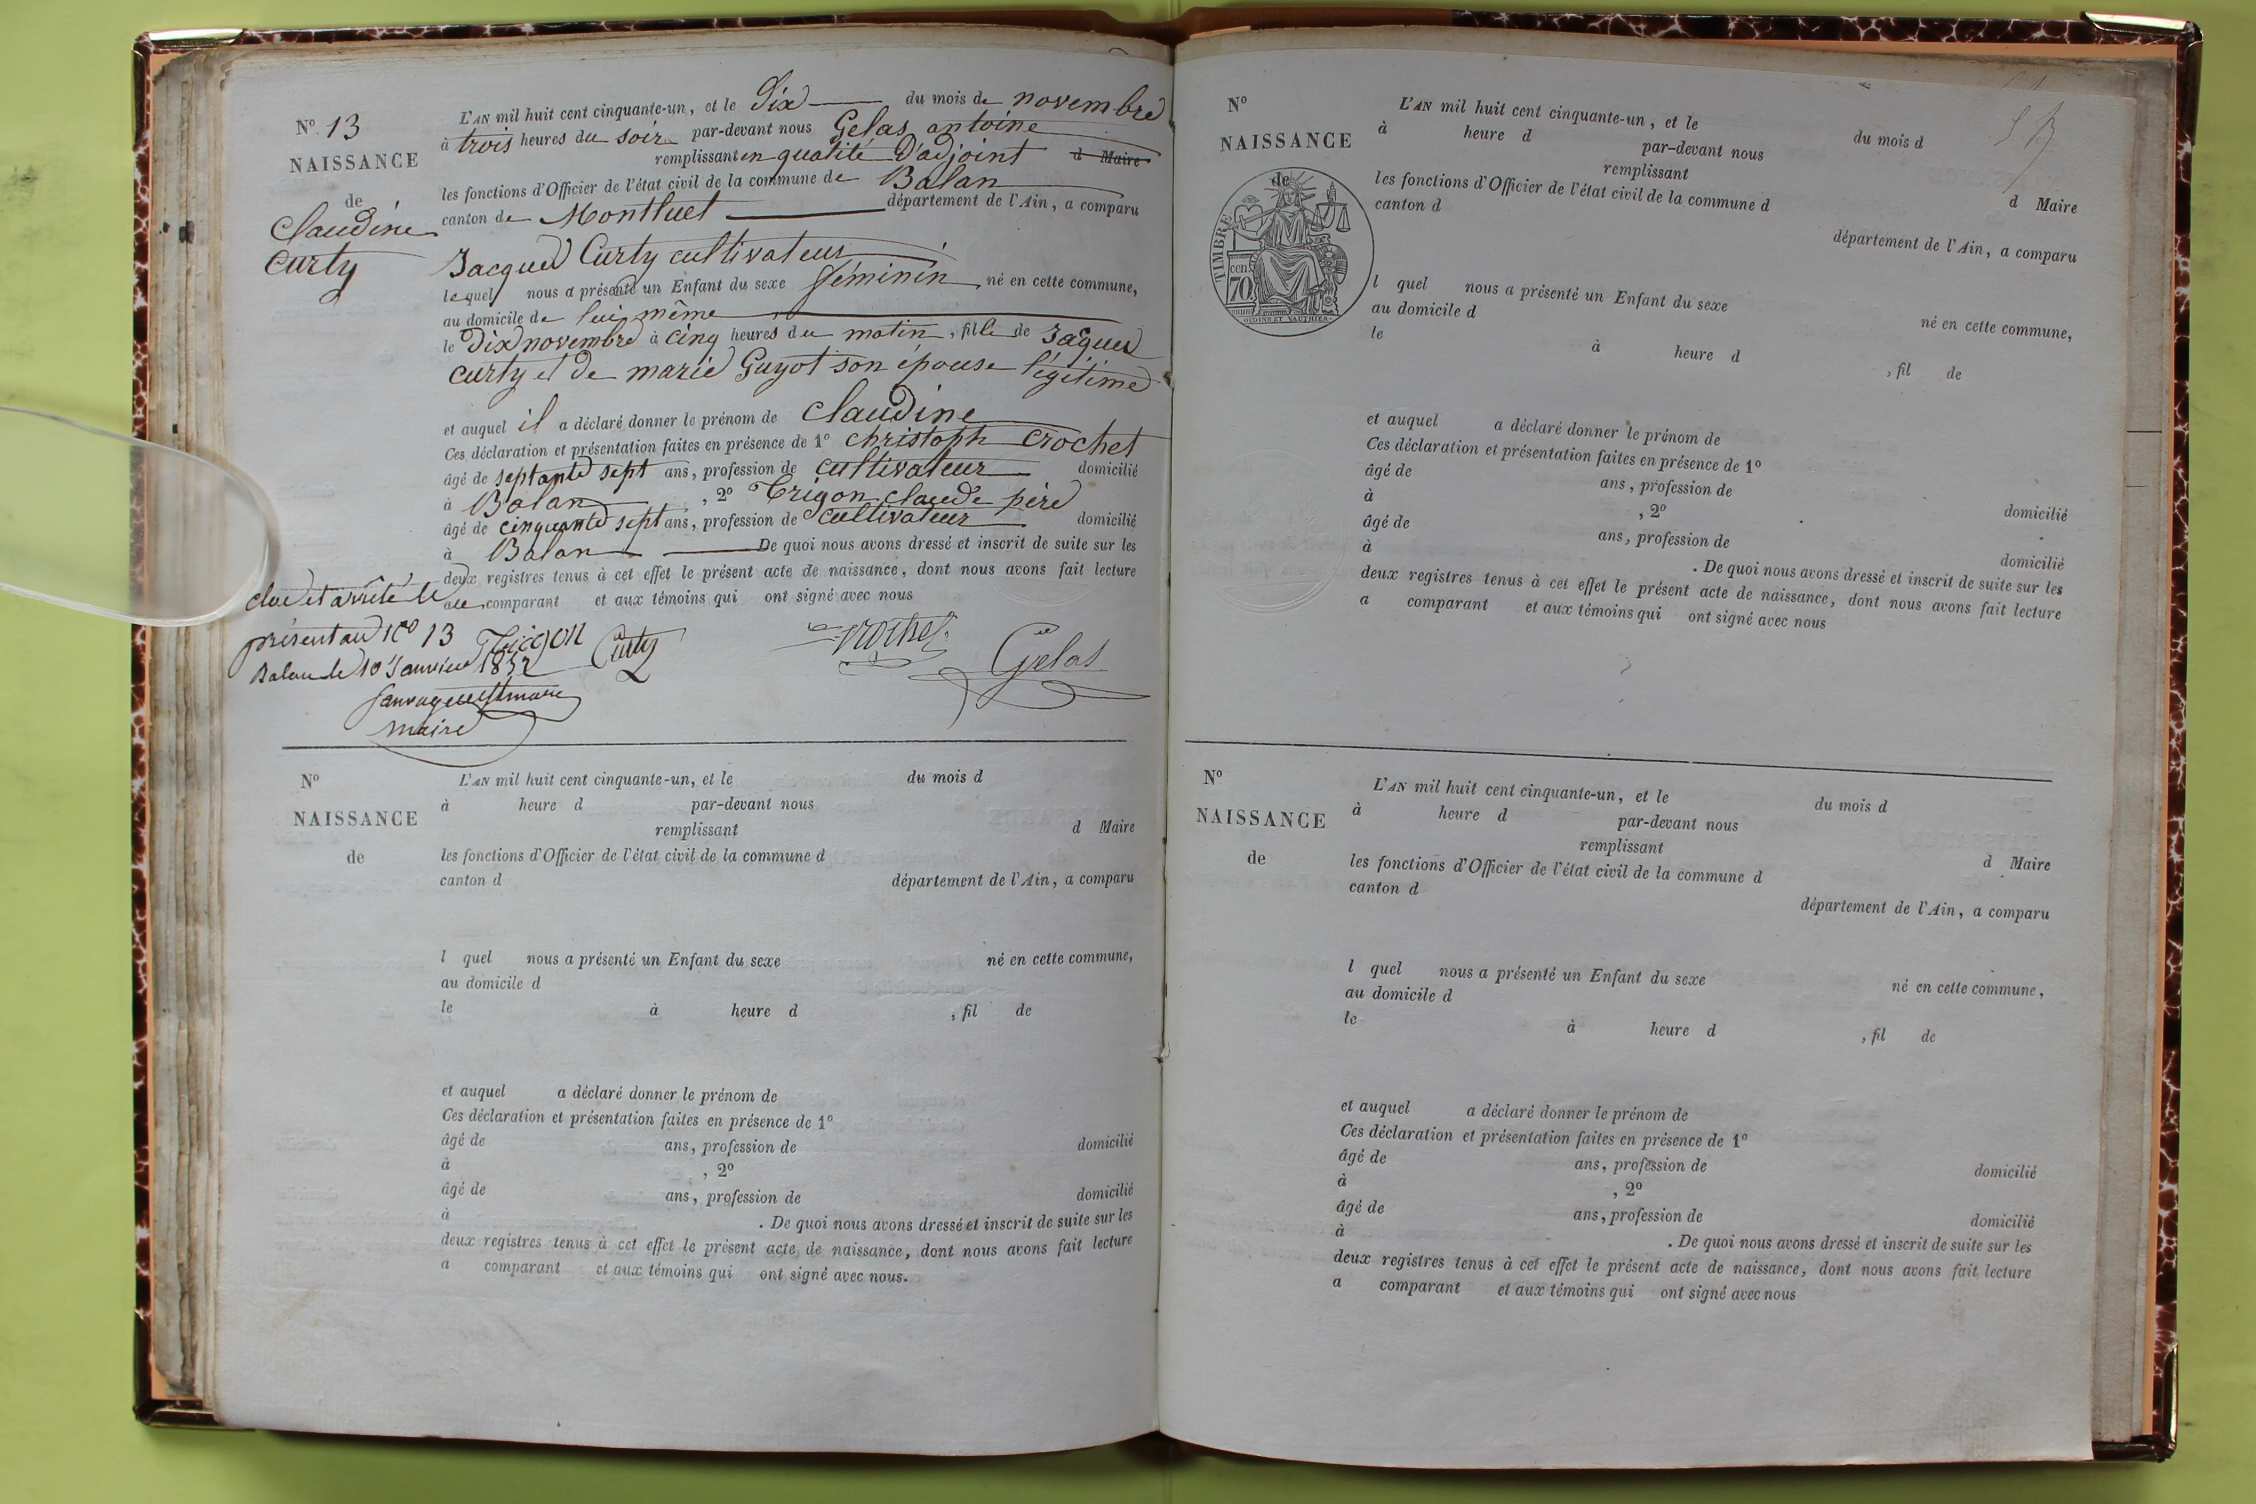 N° 13
NAISSANCE
de
Claudine
Curty
L'AN mil huit cent cinquante-un, et le Dix du mois de novembre
à trois heures du soir par-devant nous Gelas antoine
remplissant en qualité D'adjoint d Maire
les fonctions d'Officier de l'état civil de la commune de Balan
canton de Montluel département de l'Ain, a comparu
Jacques Curty cultivateur
lequel nous a présenté un Enfant du sexe féminin né en cette commune,
au domicile de lui même
le Dix novembre à cinq heures du matin, fille de Jaques
Curty et De marie Guyot son épouse légitime
et auquel il a déclaré donner le prénom de Claudine
Ces déclaration et présentation faites en présence de 1° christoph Crochet
âgé de septante sept ans, profession de cultivateur domicilié
à Balan, 2° Trigon claude père
âgé de cinquante sept ans, profession de cultivateur domicilié
à Balan De quoi nous avons dressé et inscrit de suite sur les
deux registres tenus à cet effet le présent acte de naissance, dont nous avons fait lecture
au comparant et aux témoins qui ont signé avec nous
clos et arrêté le
présent au N° 13
Trigon Curty Crochet Gelas
Balan le 10 Janvier 1852
maire
N°
NAISSANCE
de
L'AN mil huit cent cinquante-un, et le du mois d
à heure d par-devant nous
remplissant d Maire
les fonctions d'Officier de l'état civil de la commune d
canton d département de l'Ain, a comparu
l quel nous a présenté un Enfant du sexe né en cette commune,
au domicile d
le à heure d , fil de
et auquel a déclaré donner le prénom de
Ces déclaration et présentation faites en présence de 1°
âgé de ans, profession de domicilié
à , 2°
âgé de ans, profession de domicilié
à . De quoi nous avons dressé et inscrit de suite sur les
deux registres tenus à cet effet le présent acte de naissance, dont nous avons fait lecture
a comparant et aux témoins qui ont signé avec nous.
N°
NAISSANCE
de
TIMBRE
cen.
70
L'AN mil huit cent cinquante-un, et le du mois d
à heure d par-devant nous
remplissant d Maire
les fonctions d'Officier de l'état civil de la commune d
canton d département de l'Ain, a comparu
l quel nous a présenté un Enfant du sexe né en cette commune,
au domicile d
le à heure d , fil de
et auquel a déclaré donner le prénom de
Ces déclaration et présentation faites en présence de 1°
âgé de ans, profession de domicilié
à , 2°
âgé de ans, profession de domicilié
à . De quoi nous avons dressé et inscrit de suite sur les
deux registres tenus à cet effet le présent acte de naissance, dont nous avons fait lecture
a comparant et aux témoins qui ont signé avec nous
N°
NAISSANCE
de
L'AN mil huit cent cinquante-un, et le du mois d
à heure d par-devant nous
remplissant d Maire
les fonctions d'Officier de l'état civil de la commune d
canton d département de l'Ain, a comparu
l quel nous a présenté un Enfant du sexe né en cette commune,
au domicile d
le à heure d , fil de
et auquel a déclaré donner le prénom de
Ces déclaration et présentation faites en présence de 1°
âgé de ans, profession de domicilié
à , 2°
âgé de ans, profession de domicilié
à . De quoi nous avons dressé et inscrit de suite sur les
deux registres tenus à cet effet le présent acte de naissance, dont nous avons fait lecture
a comparant et aux témoins qui ont signé avec nous